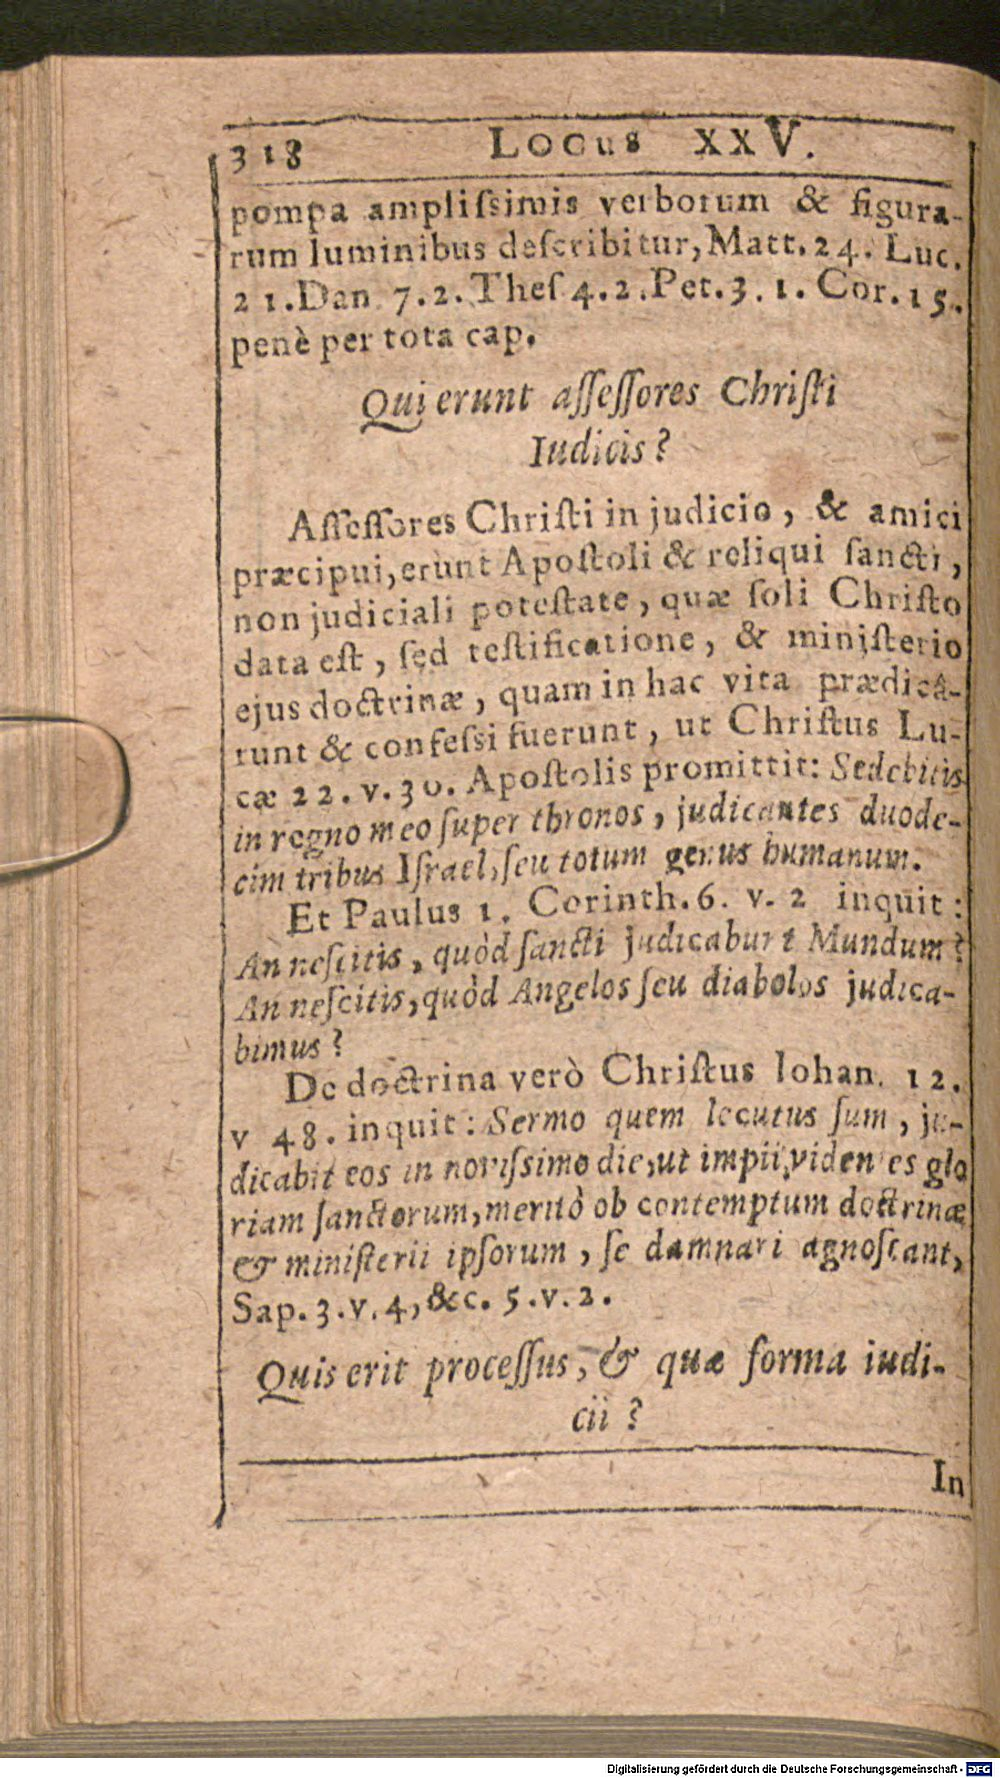 318 Locus XXV.
pompa ampliſsimis verborum & figura-
rum luminibus deſcribitur, Matt. 24. Luc.
21. Dan 7. 2. Theſ 4. 2. Pet. 3. 1. Cor. 15.
penè per tota cap.
Qui erunt aſſeſſores Chriſti
Iudicis?
Aſſeſſores Chriſti in judicio, & amici
præcipui, erunt Apoſtoli & reliqui ſancti,
non judiciali poteſtate, quæ ſoli Chriſto
data eſt, ſed teſtificatione, & miniſterio
ejus doctrinæ, quam in hac vita prædicâ-
runt & confeſsi fuerunt, ut Chriſtus Lu-
cæ 22. v. 30. Apoſtolis promittit: Sedebitis
in regno meo ſuper thronos, judicantes duode-
cim tribus Iſrael, ſeu totum genus humanum.
Et Paulus 1. Corinth. 6. v. 2 inquit:
An neſcitis, quòd ſancti judicabunt Mundum?
An neſcitis, quòd Angelos ſeu diabolos judica-
bimus?
De doctrina verò Chriſtus Iohan. 12.
v 48. inquit: Sermo quem locutus ſum, ju-
dicabit eos in noviſsimo die, ut impii, videntes glo
riam ſanctorum, meritò ob contemptum doctrinæ
& miniſterii ipſorum, ſe damnari agnoſcant,
Sap. 3. v. 4, &c. 5. v. 2.
Quis erit proceſſus, & quæ forma iudi-
cii?
In
Digitalisierung gefördert durch die Deutsche Forschungsgemeinschaft - DFG